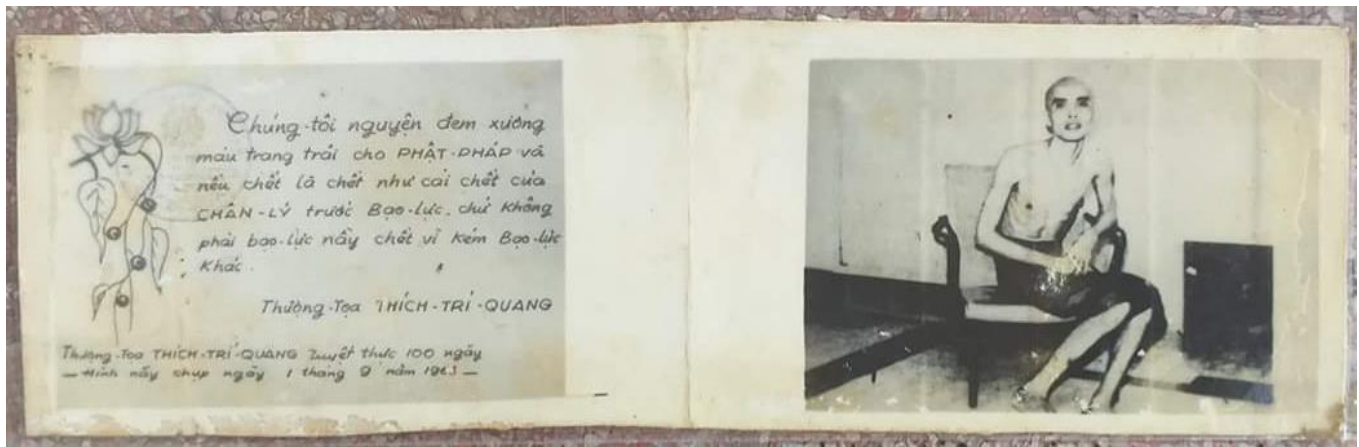 Chúng-tôi nguyện đem xương
máu trang trải cho PHẬT-PHÁP và
nếu chết là chết như cái chết của
CHÂN-LÝ trước Bạo-lực, chứ không
phải bạo-lực nầy chết vì kém Bạo-lực
khác.
Thượng-Tọa THÍCH-TRÍ-QUANG
Thượng-Tọa THÍCH-TRÍ-QUANG Tuyệt thực 100 ngày
— Hình nầy chụp ngày 1 tháng 9 năm 1963 —